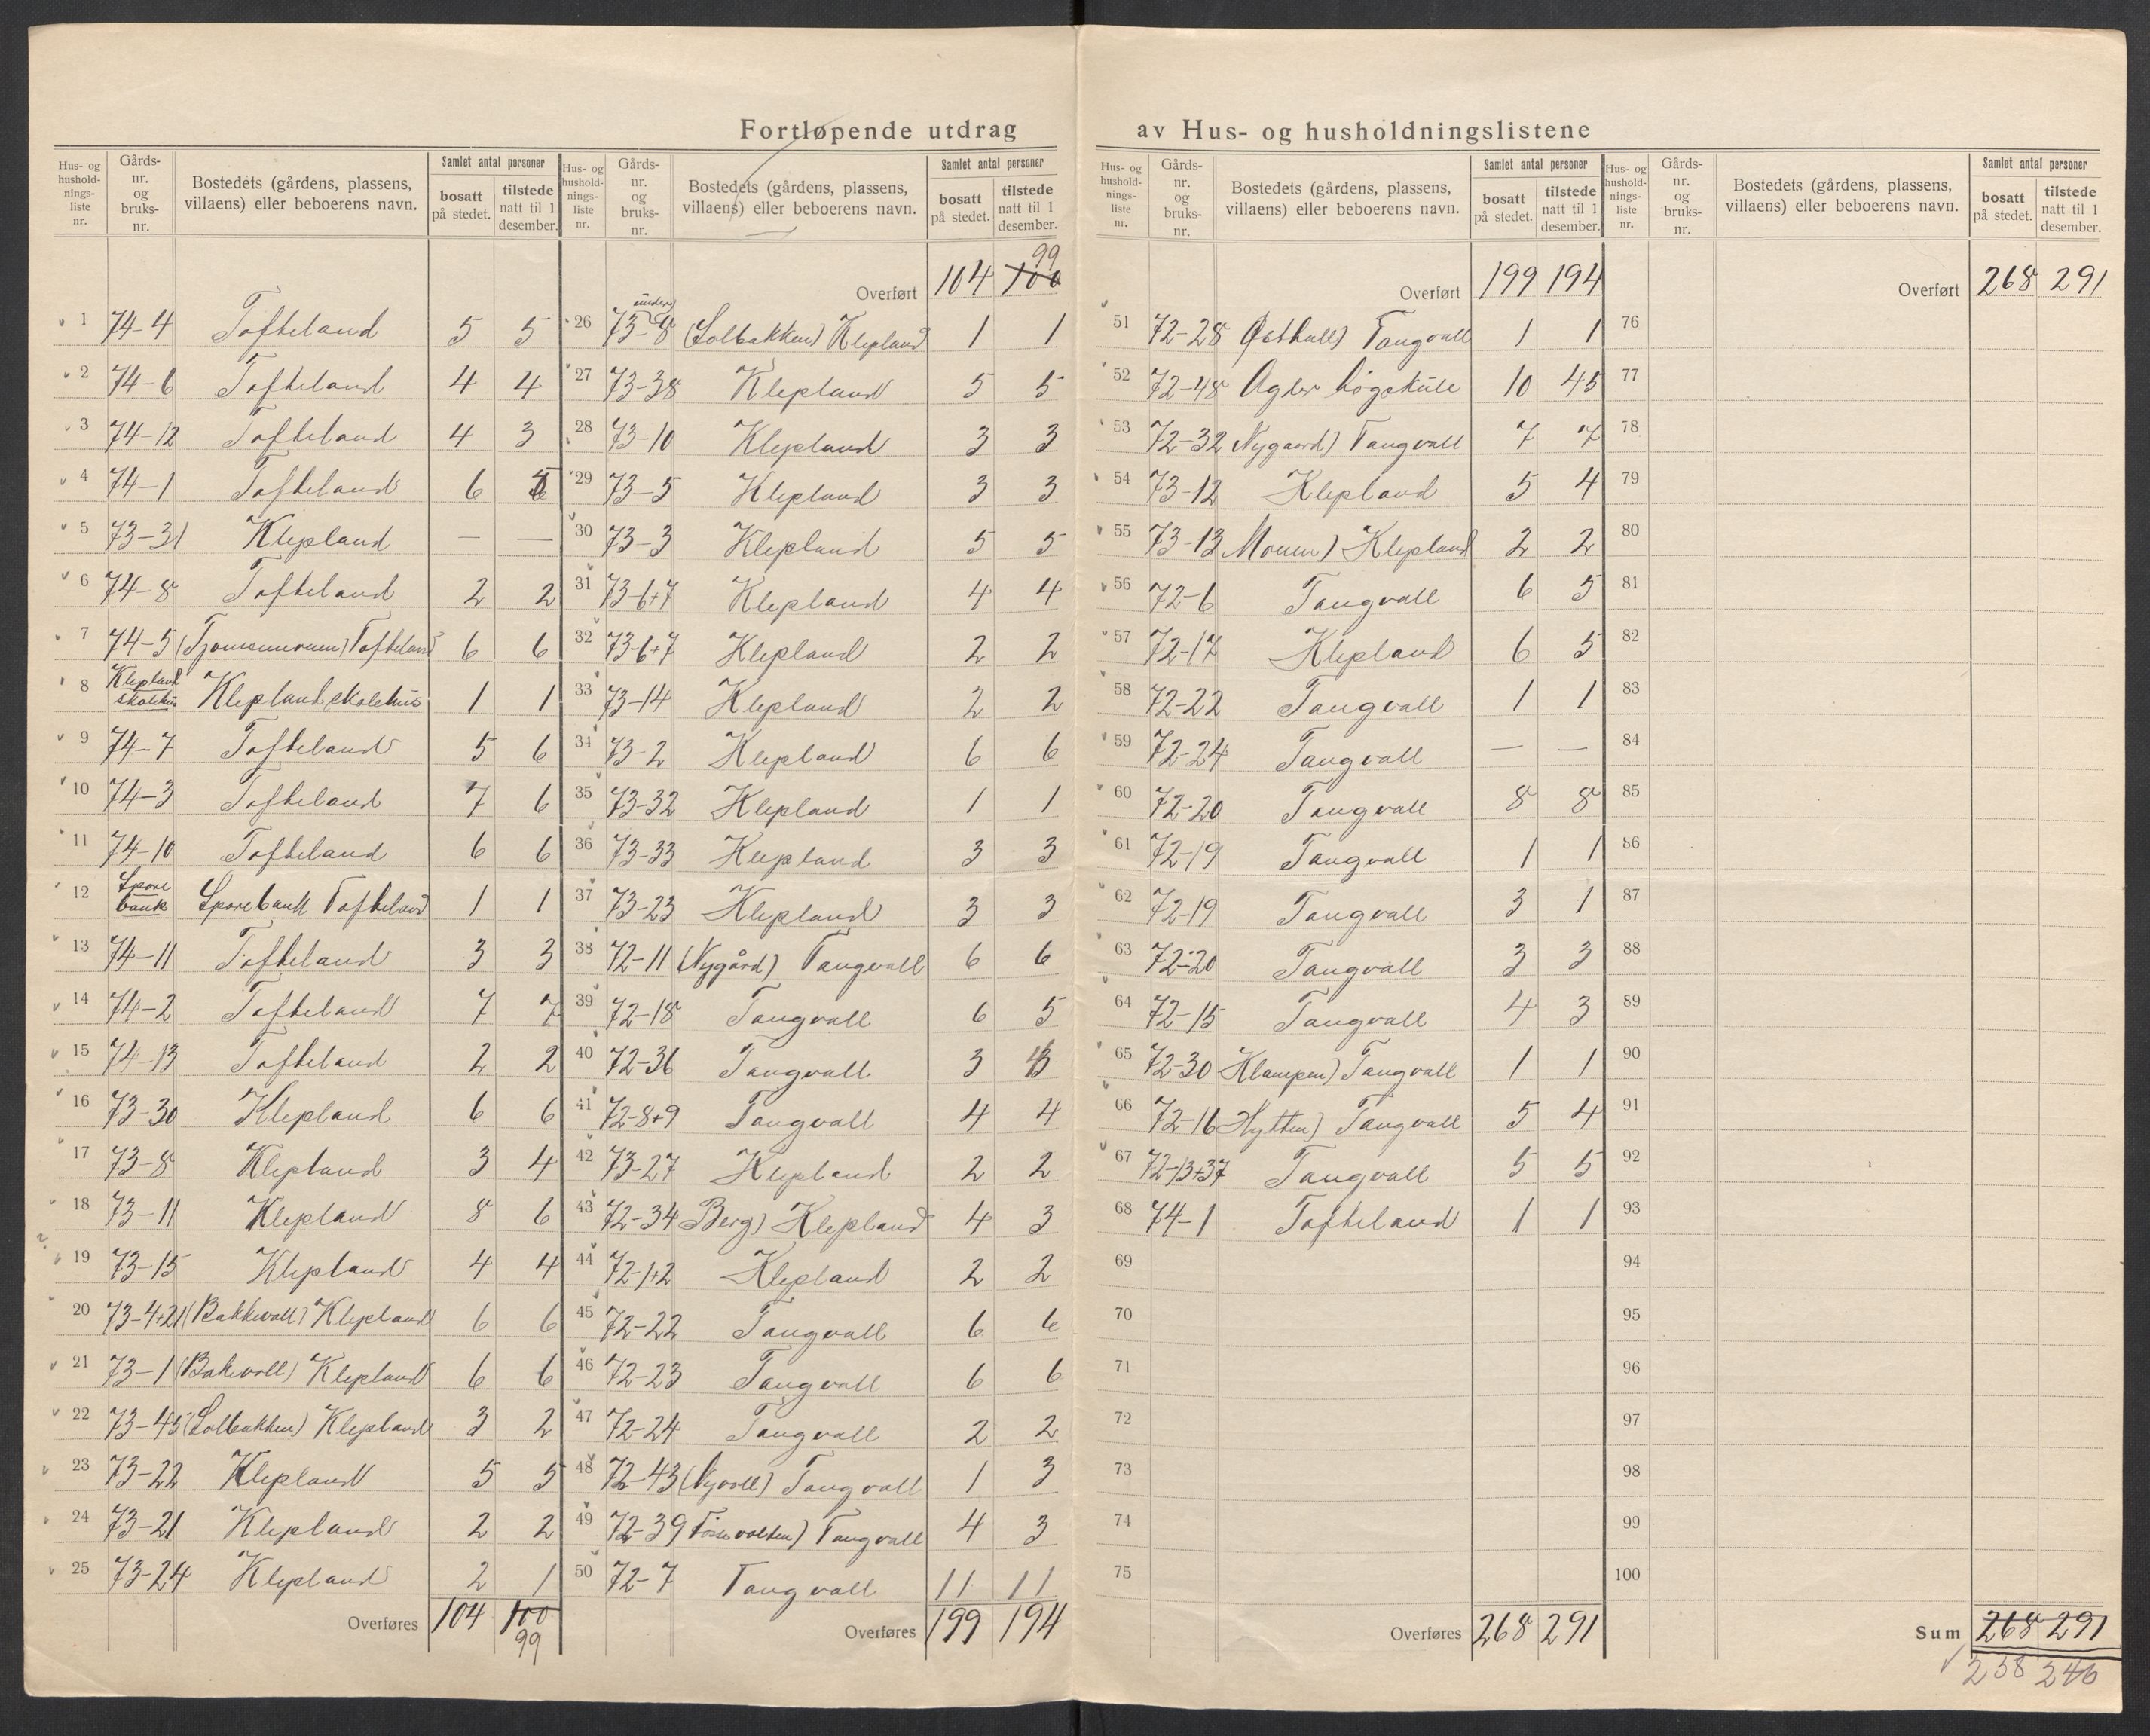 Fortløpende utdrag av Hus- og husholdningslistene
Hus- og husholdnings-liste nr. | Gårds-nr. og bruks-nr. | Bostedets (gårdens, plassens, villaens) eller beboerens navn. | Samlet antal personer | bosatt på stedet. | tilstede natt til 1 desember.
1 74-4 Tofteland 5 5
2 74-6 Tofteland 4 4
3 74-12 Tofteland 4 3
4 74-1 Tofteland 6 5
5 73-31 Klepland — —
6 74-8 Tofteland 2 2
7 74-5 (Tjomsemoen) Tofteland 6 6
8 Klepland skolehus Klepland skolehus 1 1
9 74-7 Tofteland 5 6
10 74-3 Tofteland 7 6
11 74-10 Tofteland 6 6
12 Spare bank Sparebank Tofteland 1 1
13 74-11 Tofteland 3 3
14 74-2 Tofteland 7 7
15 74-13 Tofteland 2 2
16 73-30 Klepland 6 6
17 73-8 Klepland 3 4
18 73-11 Klepland 8 6
19 73-15 Klepland 4 4
20 73-4+21 (Bakkevoll) Klepland 6 6
21 73-1 (Bakevoll) Klepland 6 6
22 73-45 (Solbakken) Klepland 3 2
23 73-22 Klepland 5 5
24 73-21 Klepland 2 2
25 73-24 Klepland 2 1
Overføres 104 100
99
Hus- og husholdnings-liste nr. | Gårds-nr. og bruks-nr. | Bostedets (gårdens, plassens, villaens) eller beboerens navn. | Samlet antal personer | bosatt på stedet. | tilstede natt til 1 desember.
99
Overført 104 100
under
26 73-8 (Solbakken) Klepland 1 1
27 73-38 Klepland 5 5
28 73-10 Klepland 3 3
29 73-5 Klepland 3 3
30 73-3 Klepland 5 5
31 73-6+7 Klepland 4 4
32 73-6+7 Klepland 2 2
33 73-14 Klepland 2 2
34 73-2 Klepland 6 6
35 73-32 Klepland 1 1
36 73-33 Klepland 3 3
37 73-23 Klepland 3 3
38 72-11 (Nygård) Tangvall 6 6
39 72-18 Tangvall 6 5
40 72-36 Tangvall 3 3
41 72-8+9 Tangvall 4 4
42 73-27 Klepland 2 2
43 72-34 Berg) Klepland 4 3
44 72-1+2 Klepland 2 2
45 72-22 Tangvall 6 6
46 72-23 Tangvall 6 6
47 72-24 Tangvall 2 2
48 72-43 (Nyvoll) Tangvall 1 3
49 72-39 Tangvall 4 3
50 72-7 Tangvall 11 11
Overføres 199 194
Hus- og husholdnings-liste nr. | Gårds-nr. og bruks-nr. | Bostedets (gårdens, plassens, villaens) eller beboerens navn. | Samlet antal personer | bosatt på stedet. | tilstede natt til 1 desember.
Overført 199 194
51 72-28 Tangvall 1 1
52 72-48 Agder høgskule 10 45
53 72-32 Nygaard) Tangvall 7 7
54 73-12 Klepland 5 4
55 73-13 Mouen) Klepland 2 2
56 72-6 Tangvall 6 5
57 72-17 Klepland 6 5
58 72-22 Tangvall 1 1
59 72-24 Tangvall — —
60 72-20 Tangvall 8 8
61 72-19 Tangvall 1 1
62 72-19 Tangvall 3 1
63 72-20 Tangvall 3 3
64 72-15 Tangvall 4 3
65 72-30 Klampen) Tangvall 1 1
66 72-16 Hytten) Tangvall 5 4
67 72-13+37 Tangvall 5 5
68 74-1 Tofteland 1 1
69
70
71
72
73
74
75
Overføres 268 291
Hus- og husholdnings-liste nr. | Gårds-nr. og bruks-nr. | Bostedets (gårdens, plassens, villaens) eller beboerens navn. | Samlet antal personer | bosatt på stedet. | tilstede natt til 1 desember.
Overført 268 291
76
77
78
79
80
81
82
83
84
85
86
87
88
89
90
91
92
93
94
95
96
97
98
99
100
Sum 268 291
258 246